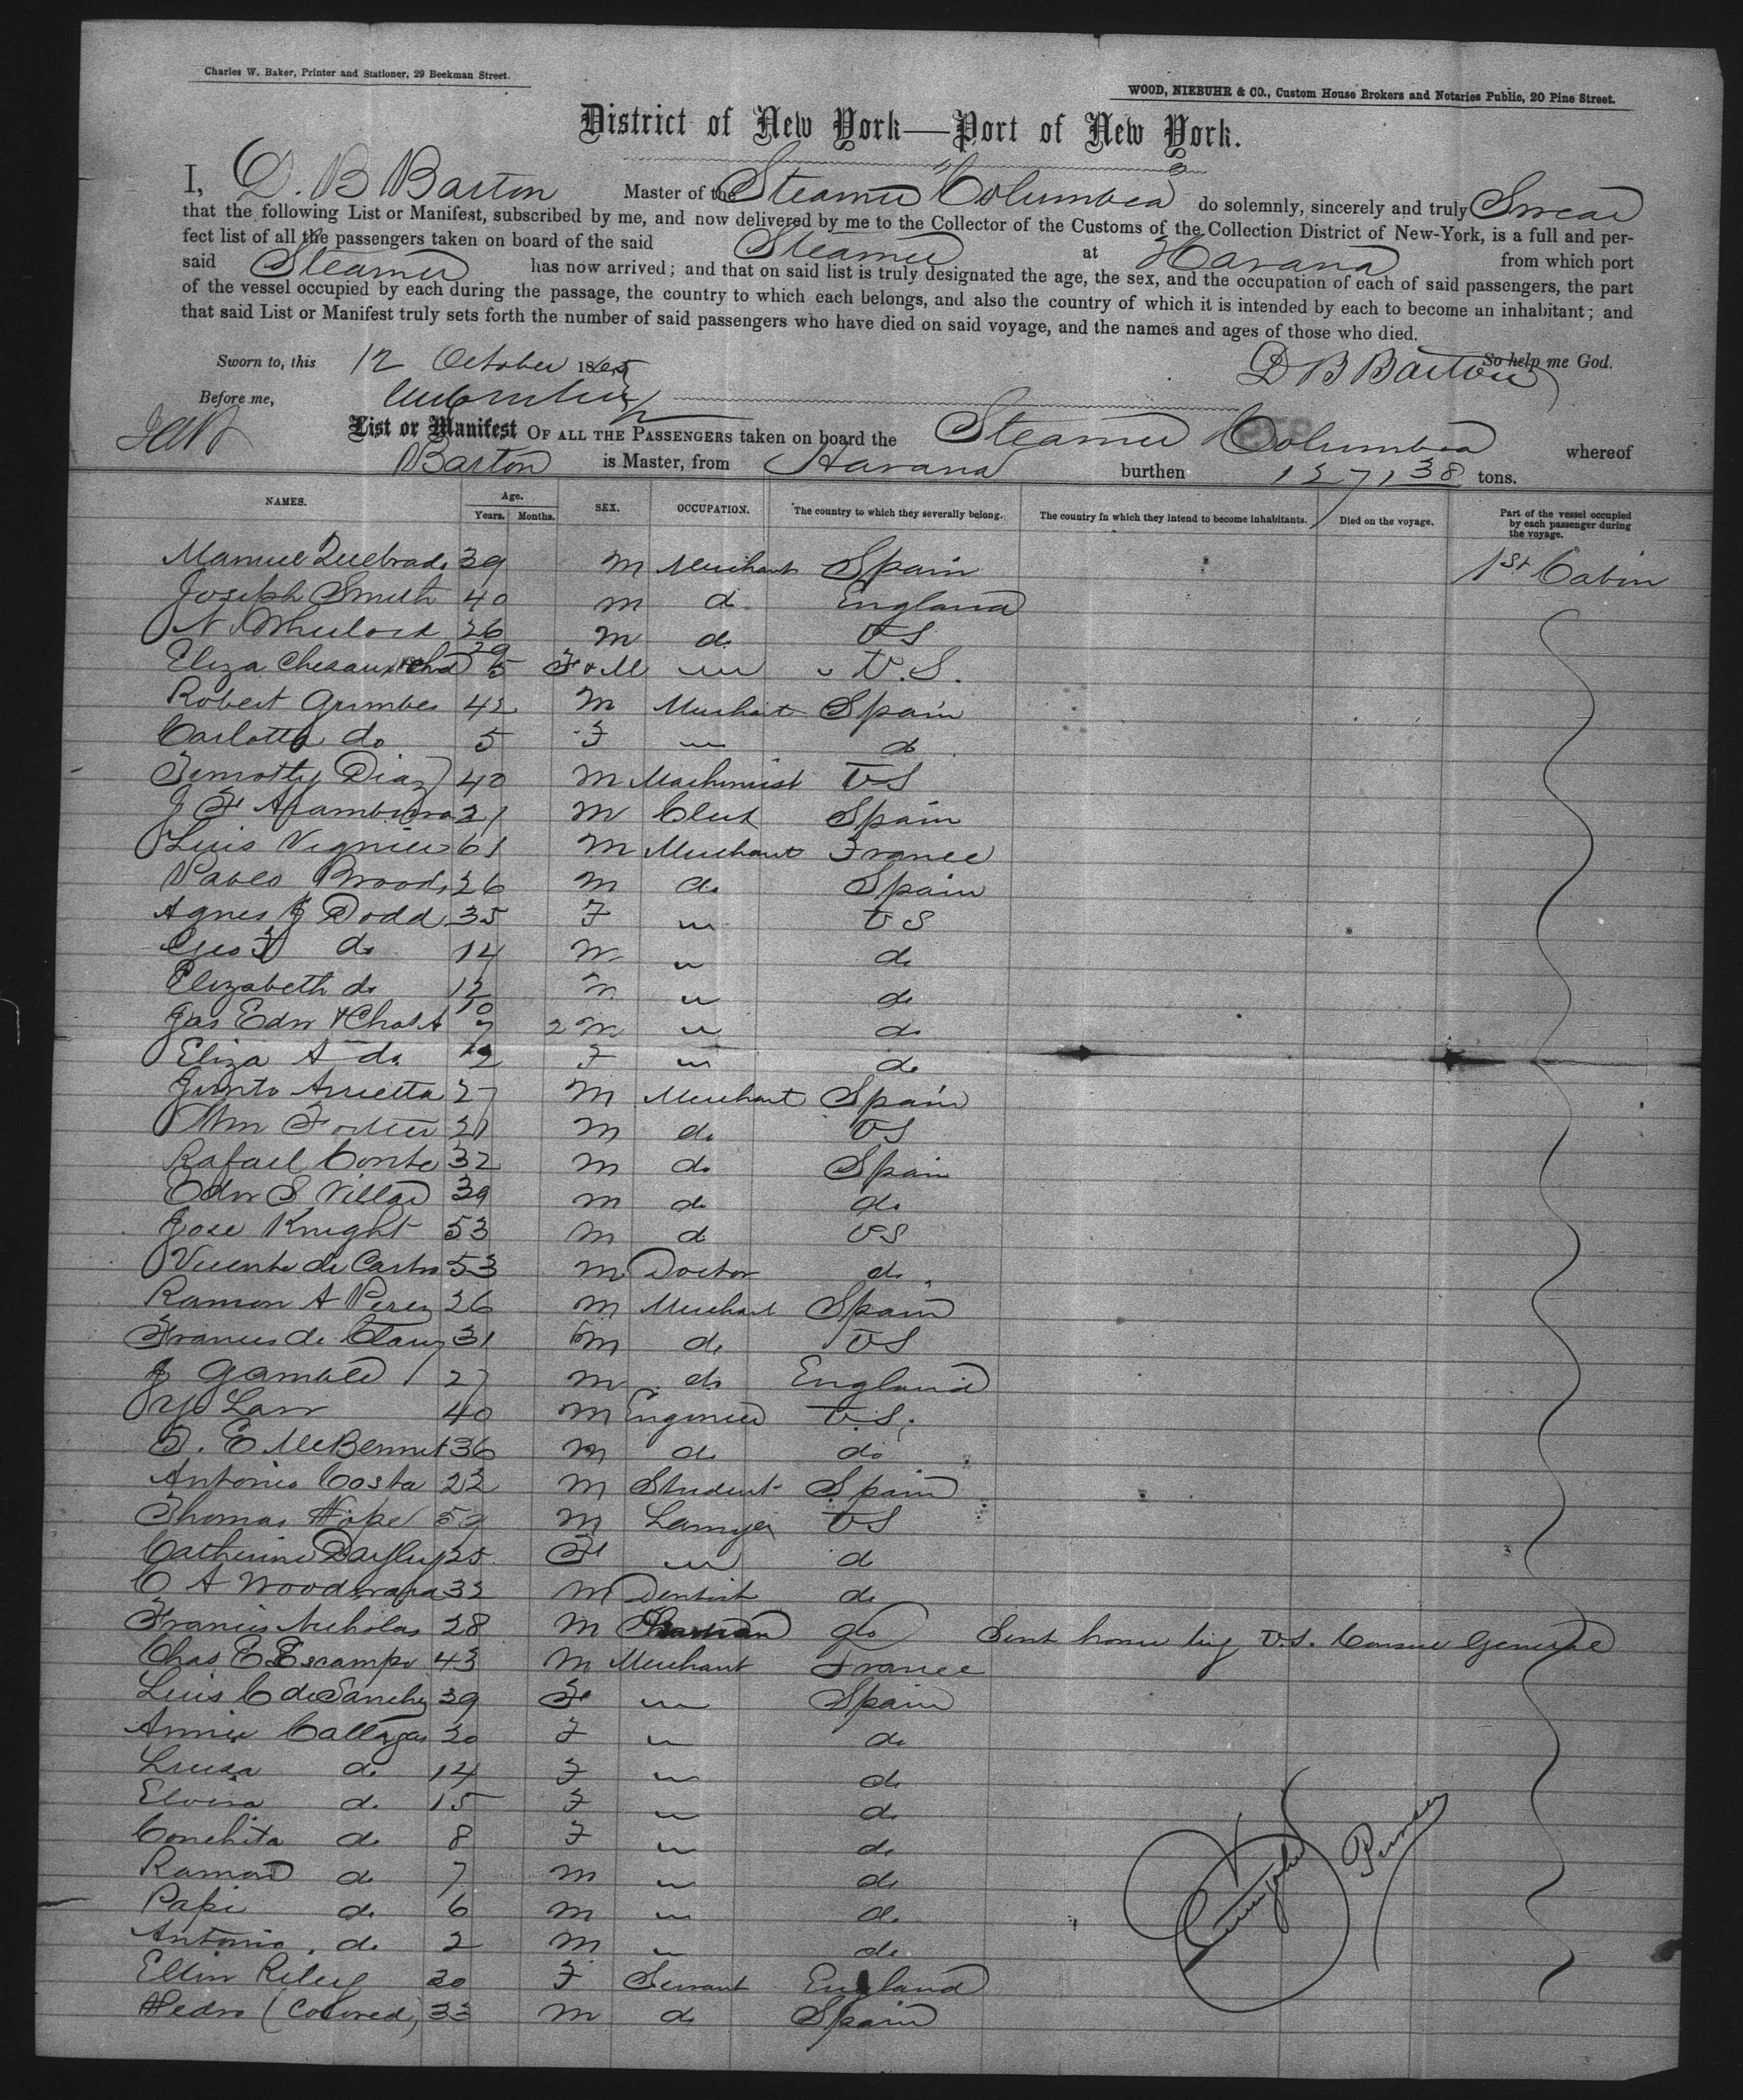 Charles W. Baker, Printer and Stationer, 29 Beekman Street.
WOOD, NIEBUHR & CO., Custom House Brokers and Notaries Public, 20 Pine Street.
District of New York—Port of New York.
I, D. B Barton Master of the Steamer Columbia do solemnly, sincerely and truly Swear
that the following List or Manifest, subscribed by me, and now delivered by me to the Collector of the Customs of the Collection District of New-York, is a full and per-
fect list of all the passengers taken on board of the said Steamer at Havana from which port
said Steamer has now arrived; and that on said list is truly designated the age, the sex, and the occupation of each of said passengers, the part
of the vessel occupied by each during the passage, the country to which each belongs, and also the country of which it is intended by each to become an inhabitant; and
that said List or Manifest truly sets forth the number of said passengers who have died on said voyage, and the names and ages of those who died.
Sworn to, this 12 October 1865 So help me God.
D B Barton
Before me,
List or Manifest OF ALL THE PASSENGERS taken on board the Steamer Columbia whereof
Barton is Master, from Havana burthen tons.
NAMES. Age. Years. Months. SEX. OCCUPATION. The country to which they severally belong. The country in which they intend to become inhabitants. Died on the voyage. Part of the vessel occupied by each passenger during the voyage.
Manuel Quebrado 39 M Merchant Spain 1st Cabin
Joseph Smith 40 M do England
N Wheelock 26 M do US
Eliza 29 5 F & M " U.S.
Robert 42 M Merchant Spain
Carlotta do 5 F " do
Timothy Diaz 40 M Machinist US
J F 21 M Clerk Spain
Luis 61 M Merchant France
Pablo 26 M do Spain
Agnes J Dodd 35 F " US
Geo do 14 M " do
Elizabeth do 12 " do
Jas Edw & Chas A 10 7 2 M " do
Eliza A do 2 F " do
Arrietta 27 M Merchant Spain
Wm 21 M do US
Rafael Conte 32 M do Spain
Edw S Villar 39 M do do
Jose Knight 53 M do US
Vicente de Castro 53 M Doctor do
Ramon A Perez 26 M Merchant Spain
Francis de 31 M do US
J Gamble 27 M do England
Law 40 M Engineer U.S.
E McBennet 36 M do do
Antonio Costa 22 M Student Spain
Thomas Hope 59 M Lawyer US
Catherine 25 F " do
C A Woodward 32 M Dentist do
Francis Nicholas 28 M do Sent home by U.S. Consul General
Chas E 43 M Merchant France
Luis C de Sanchez 39 F " Spain
Annie 30 F " do
Luisa do 14 F " do
Elvira do 15 F " do
Conchita do 8 F " do
Ramon do 7 M " do
Papi do 6 M " do
Antonio do 2 M " do
Ellen Riley 20 F Servant England
Pedro (Colored) 33 M do Spain
Purser